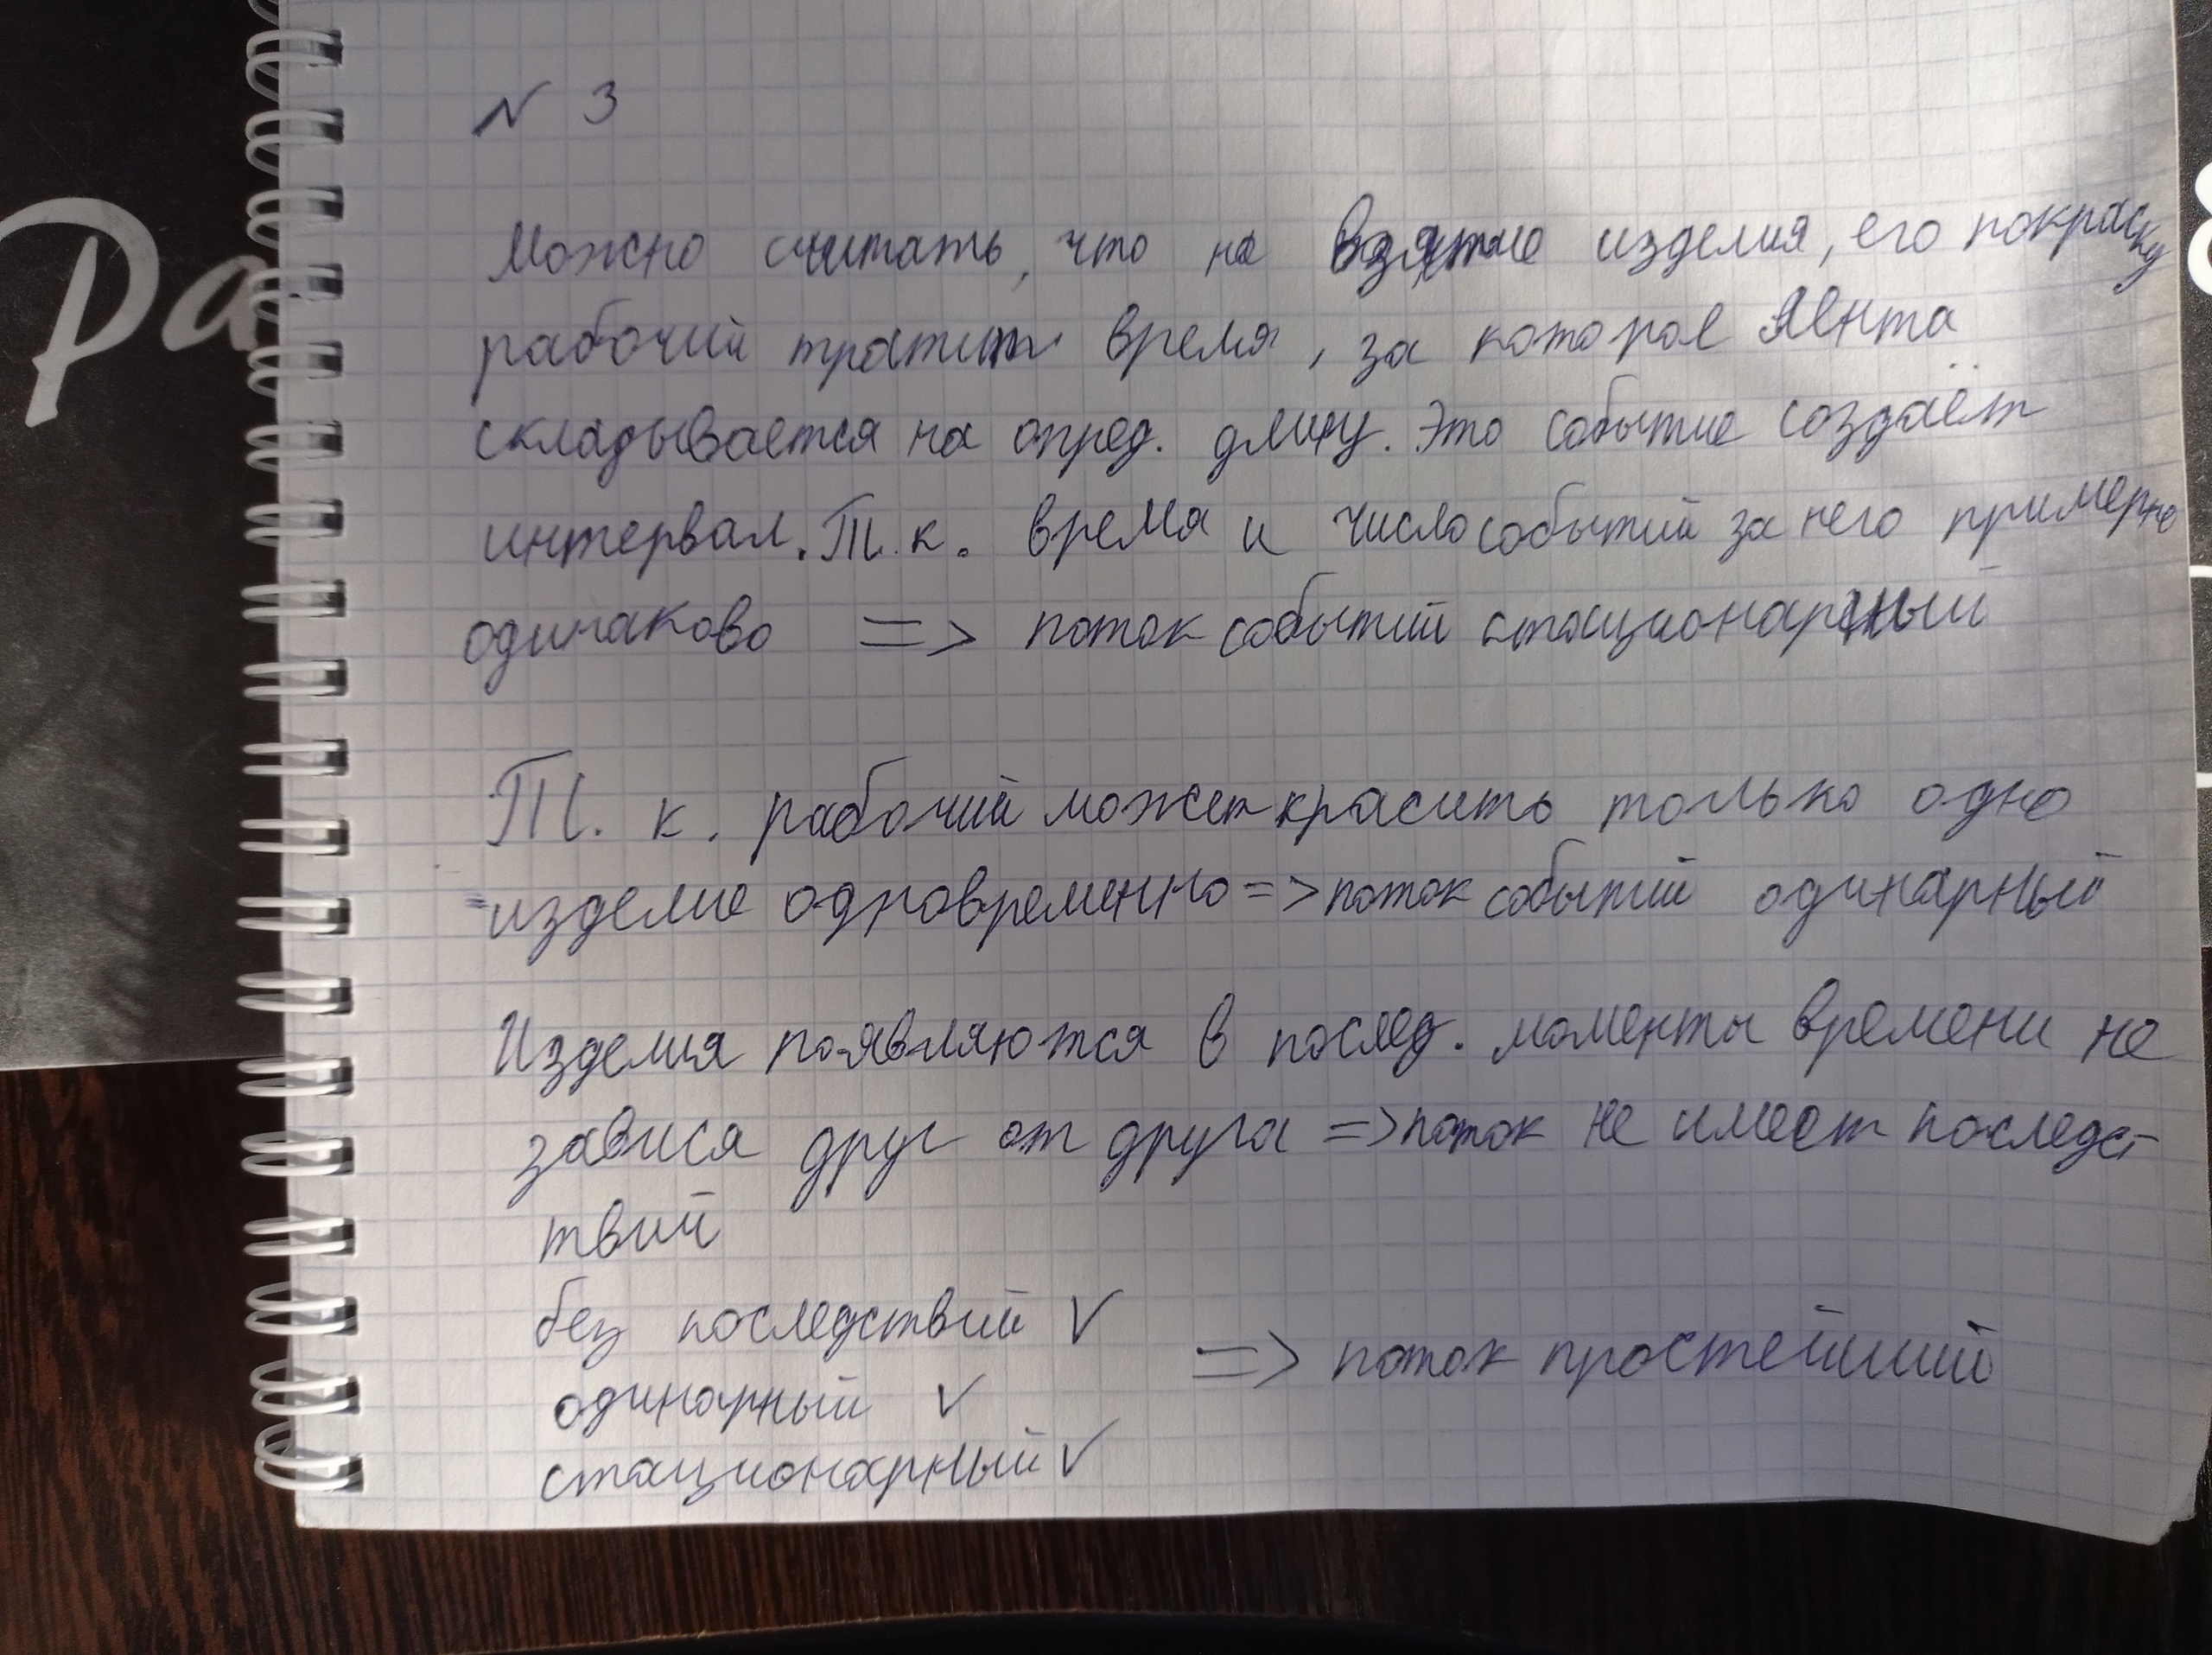 № 3
Можно считать, что на взятие изделия, его покраску
рабочий тратит время, за которое лента
складывается на опред. длину. Это событие создаёт
интервал. Т. к. время и число событий за него примерно
одинаково => поток событий стационарный
Т. к. рабочий может красить только одно
изделие одновременно => поток событий одинарный
Изделия появляются в послед. моменты времени не
завися друг от друга => поток не имеет последст
твий
без последствий V
одинарный V
стационарный V
=> поток простейший
Ра